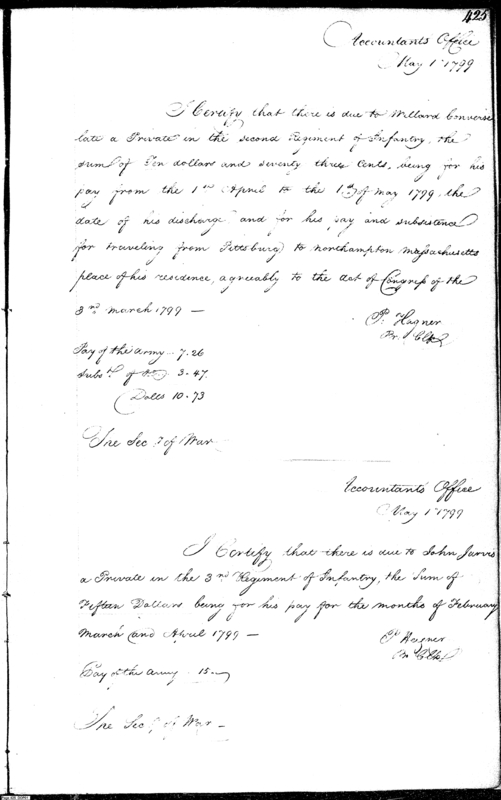 425
Accountants Office
May 1st 1799
I Certify that there is due to Millard Converse
late a Private in the second Regiment of Infantry, the
sum of Ten dollars and seventy three Cents, being for his
pay from the 1st April to the 1st of may 1799 the
date of his discharge and for his pay and subsistence
for traveling from Pittsburg to Northampton Massachusetts
place of his residence, agreeably to the Act of Congress of the
3rd march 1799 —
P. Hagner
Pr. Clk
Pay of the Army .. 7.26
Subs. of do 3.47
Dolls 10.73
The Secy of War
Accountants Office
May 1st 1799
I Certify that there is due to John Jarvis
a Private in the 3rd Regiment of Infantry, the Sum of
Fifteen Dollars being for his pay for the months of February
March and April 1799 —
P. Hagner
Pr Clk
Pay of the Army . 15 —
The Secy of War —